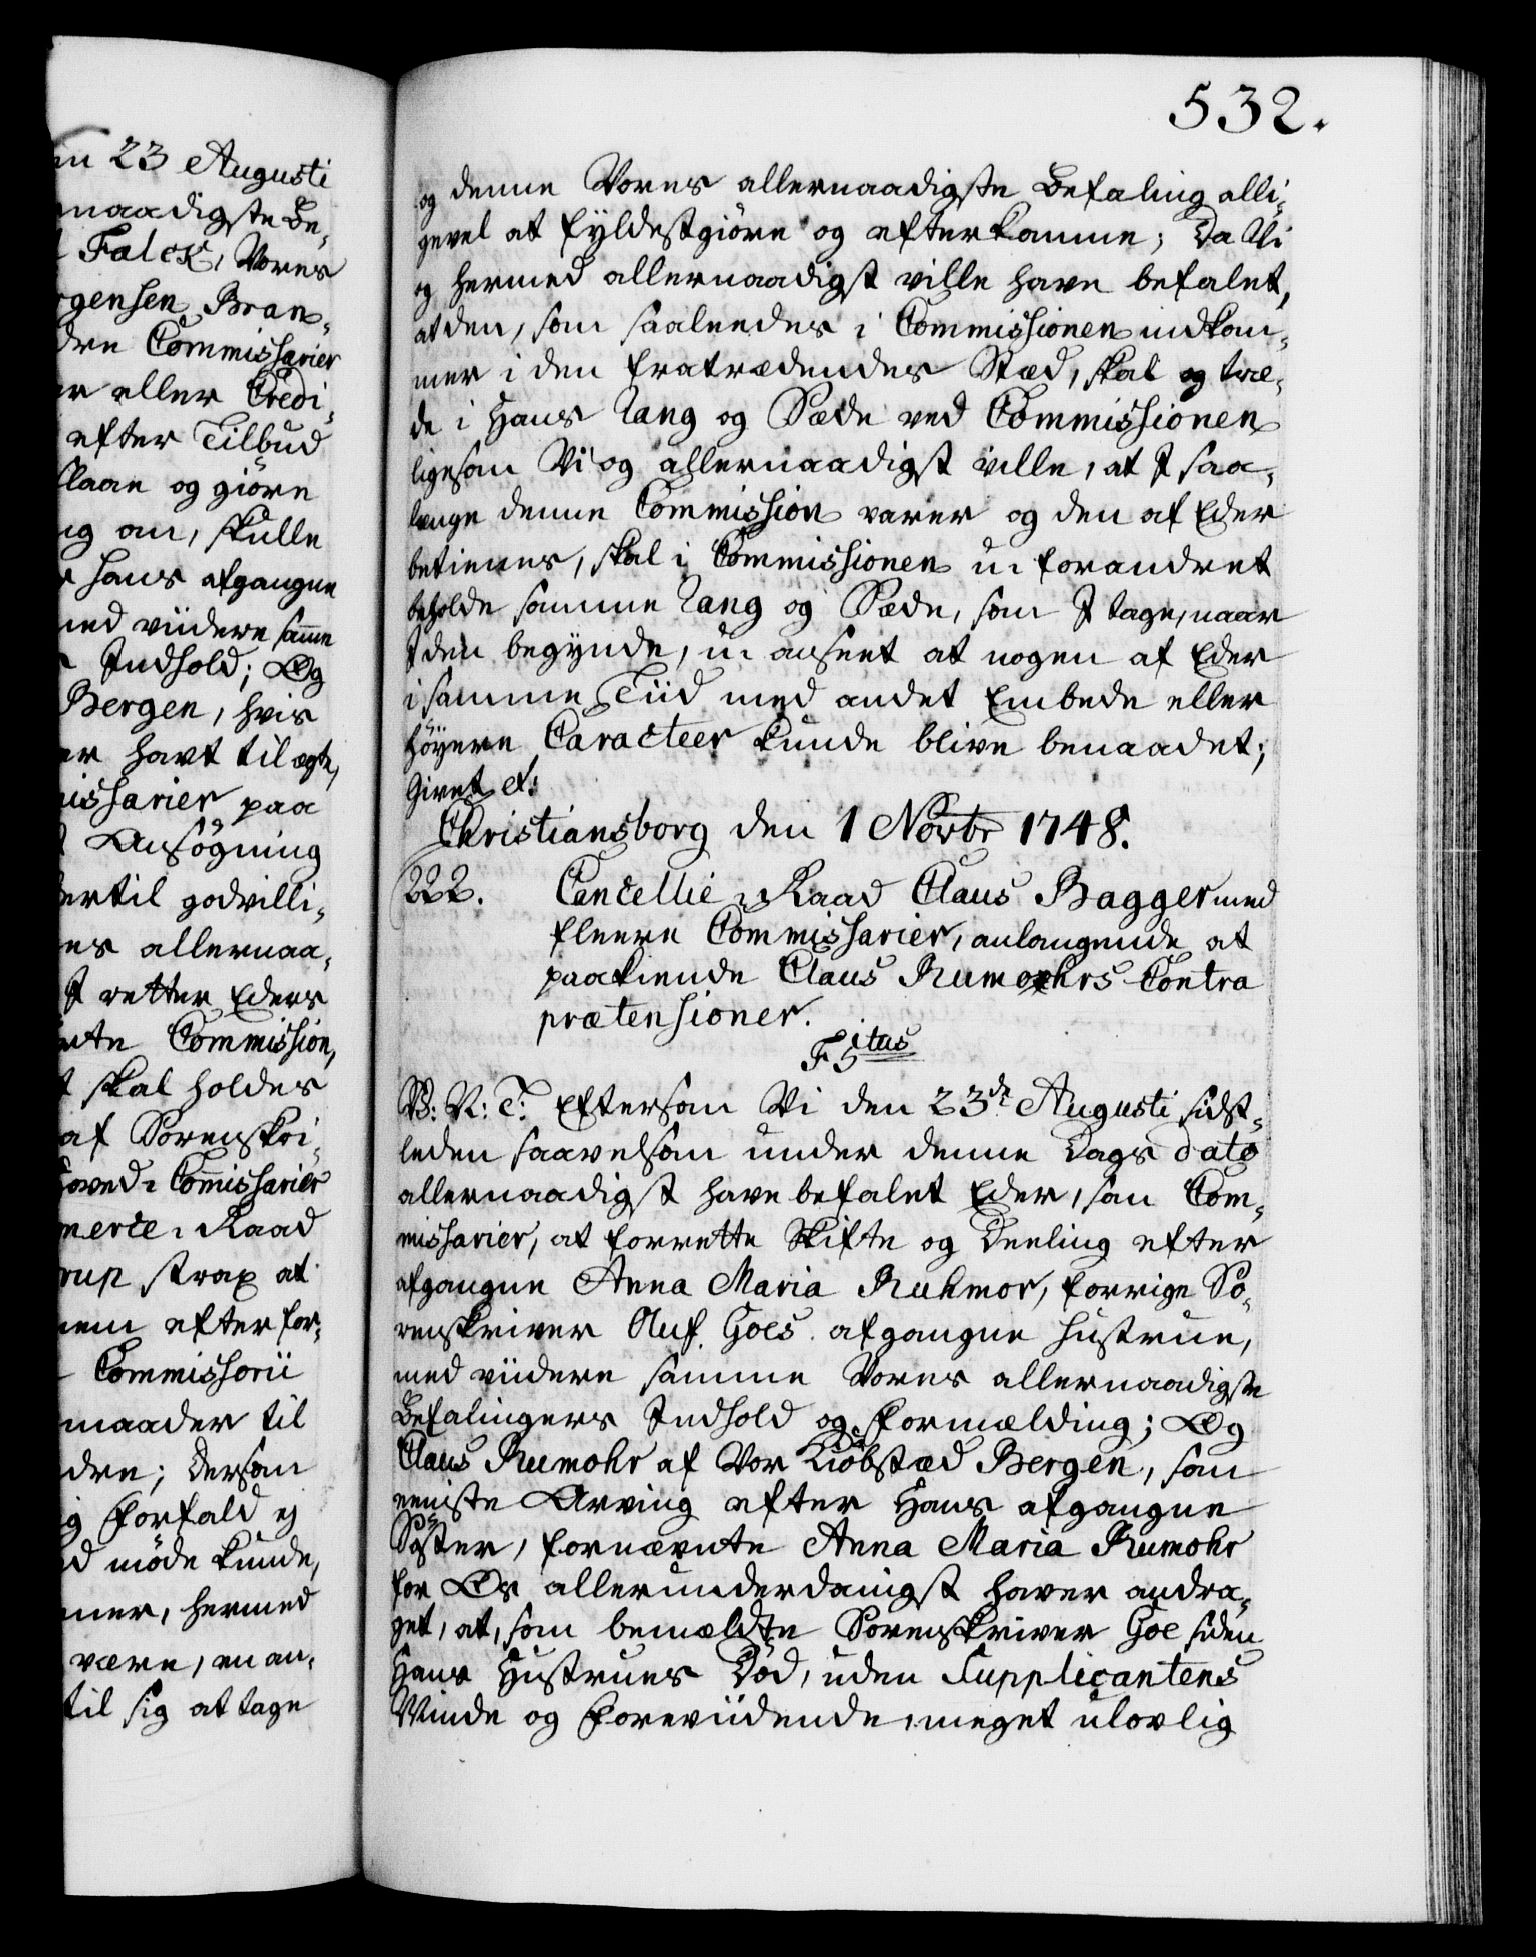 532.
en 23 Augusti
rnaadigste Be„
l Falck, Vores
rgensen, Bran„
dre Commissarier
er eller Credi„
efter Tilbud
slaae og giöre
ng an, skulle
r Hans afgangne
med viidere samme
s Indhold; Og
Bergen, hvis
er havt til ægte,
missarier paa
t Ansögning
hertil godvilli„
es allernaa„
I retter Eders
nte Commission,
t skal holdes
af Sorenskri„
hoved: Commissarier
merce: Raad
rup strax at
nem efter for„
Commissorii
maader til
dre; Dersom
ig Forfald ej
d möde kunde,
mer, hermed
være, en an„
til sig at tage
og denne Vores allernaadigste Befaling alli„
gevel at fyldestgiöre og efterkomme; Da Vi
og hermed allernaadigst ville have befalet,
at den, som saaledes i Commissionen indkom„
mer i den fratrædendes Stæd, skal og træ„
de i Hans Rang og Sæde ved Commissionen
ligesom Vi og allernaadigst ville, at I saa„
længe denne Commission varer og den af Eder
betienes, skal i Commissionen u: forandret
beholde samme Rang og Sæde, som I tage, naar
I den begynde, u: anseet at nogen af Eder
i samme Tiid med andet Embede eller
höyere Caracteer kunde blive benaadet;
Givet etc:
Christiansborg den 1 Novbr 1748.
222. Cancellie: Raad Claus Bagger med
fleere Commissarier, anlangende at
paakiende Claus Rumohrs Contra
prætensioner.
F 5tus
V: A: T: Eftersom Vi den 23de Augusti sidst„
leden saavelsom under denne Dags dato
allernaadigst have befalet Eder, som Com„
missarier, at forrette Skifte og Deeling efter
afgangne Anna Maria Ruhmor, forrige So„
renskriver Auf. Goes afgangne Hustrue,
med viidere samme Vores allernaadigste
Befalingers Indhold og Formælding; Og
Claus Rumohr af Vor Kiöbstæd Bergen, som
eeniste Arving efter Hans afgangne
Söster, fornævnte Anna Maria Rumohr
for Os allerunderdanigst haver andra„
get, at, som bemældte Sorenskriver Goe siden
Hans Hustrues Död, uden Supplicantens
Minde og Foreviidende, meget ulovlig